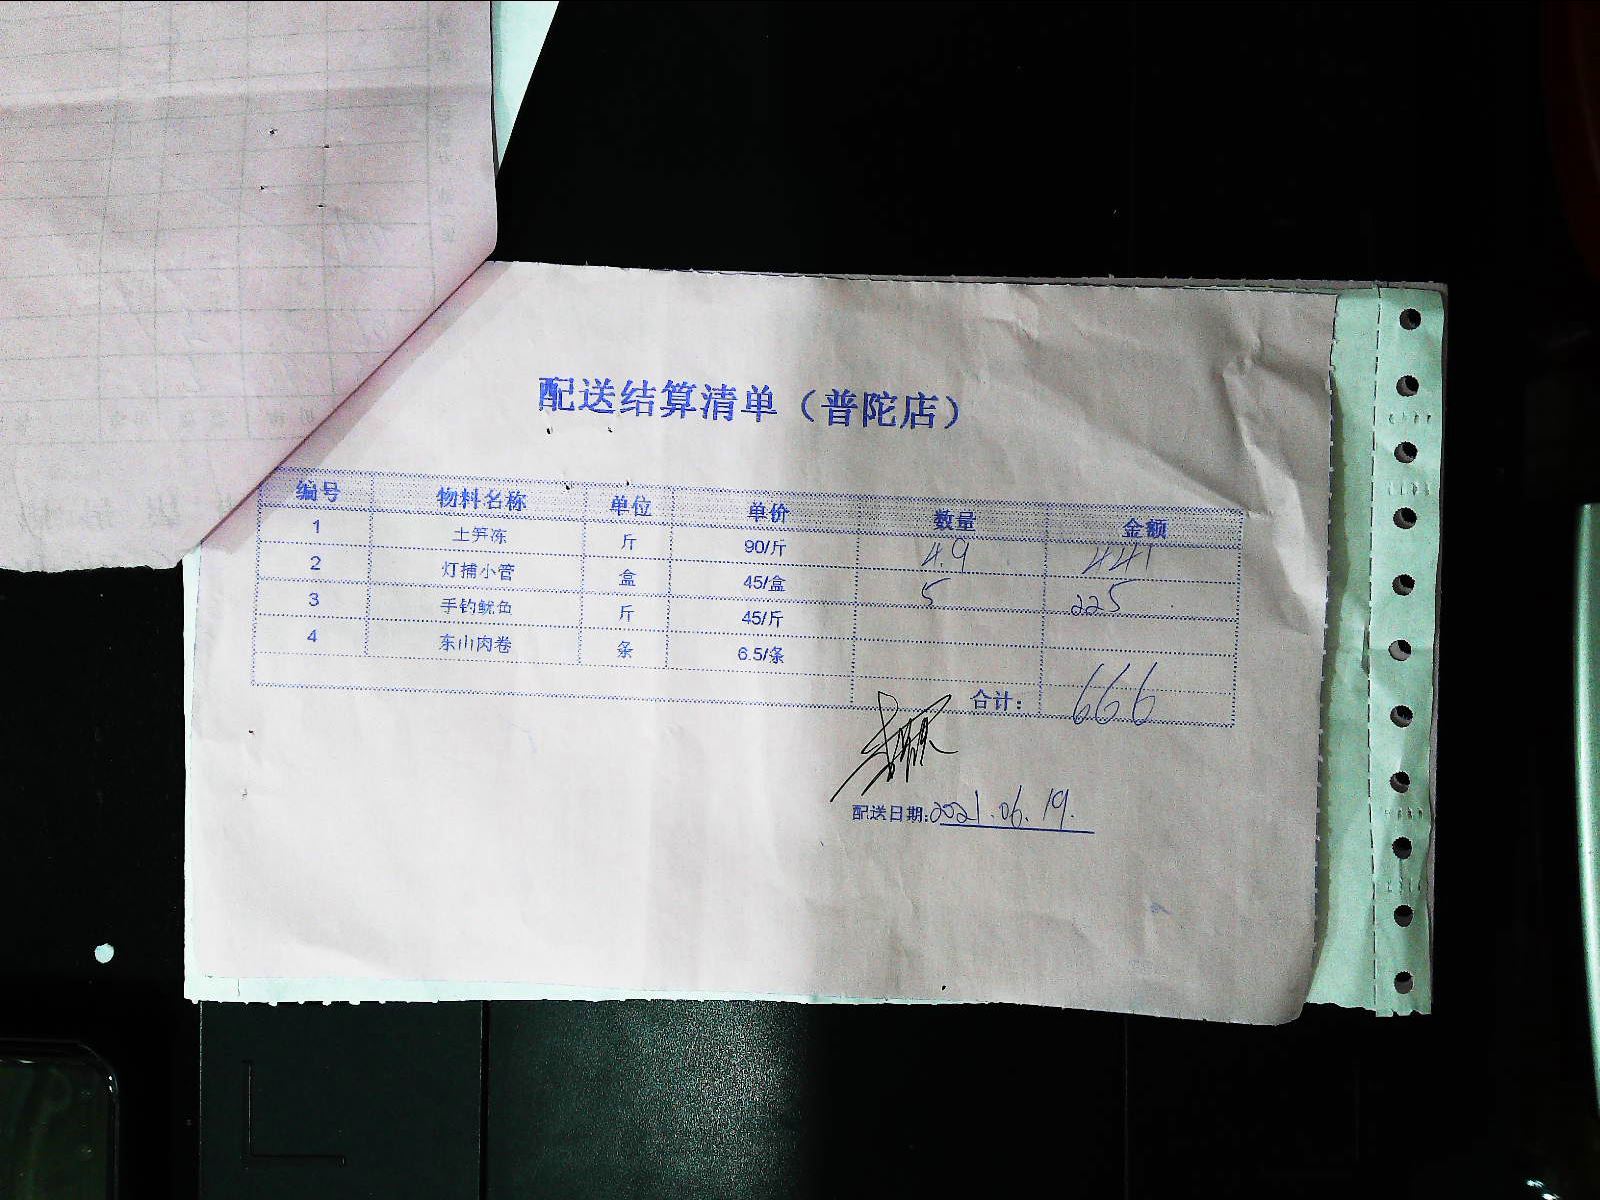 配送结算清单（普陀店）
编号 物料名称 单位 单价 数量 金额
1 土笋冻 斤 90/斤 4.9 441
2 灯捕小管 盒 45/盒 5 225
3 手钓鱿鱼 斤 45/斤
4 东山肉卷 条 6.5/条
合计： 666
配送日期:2021.06.19.